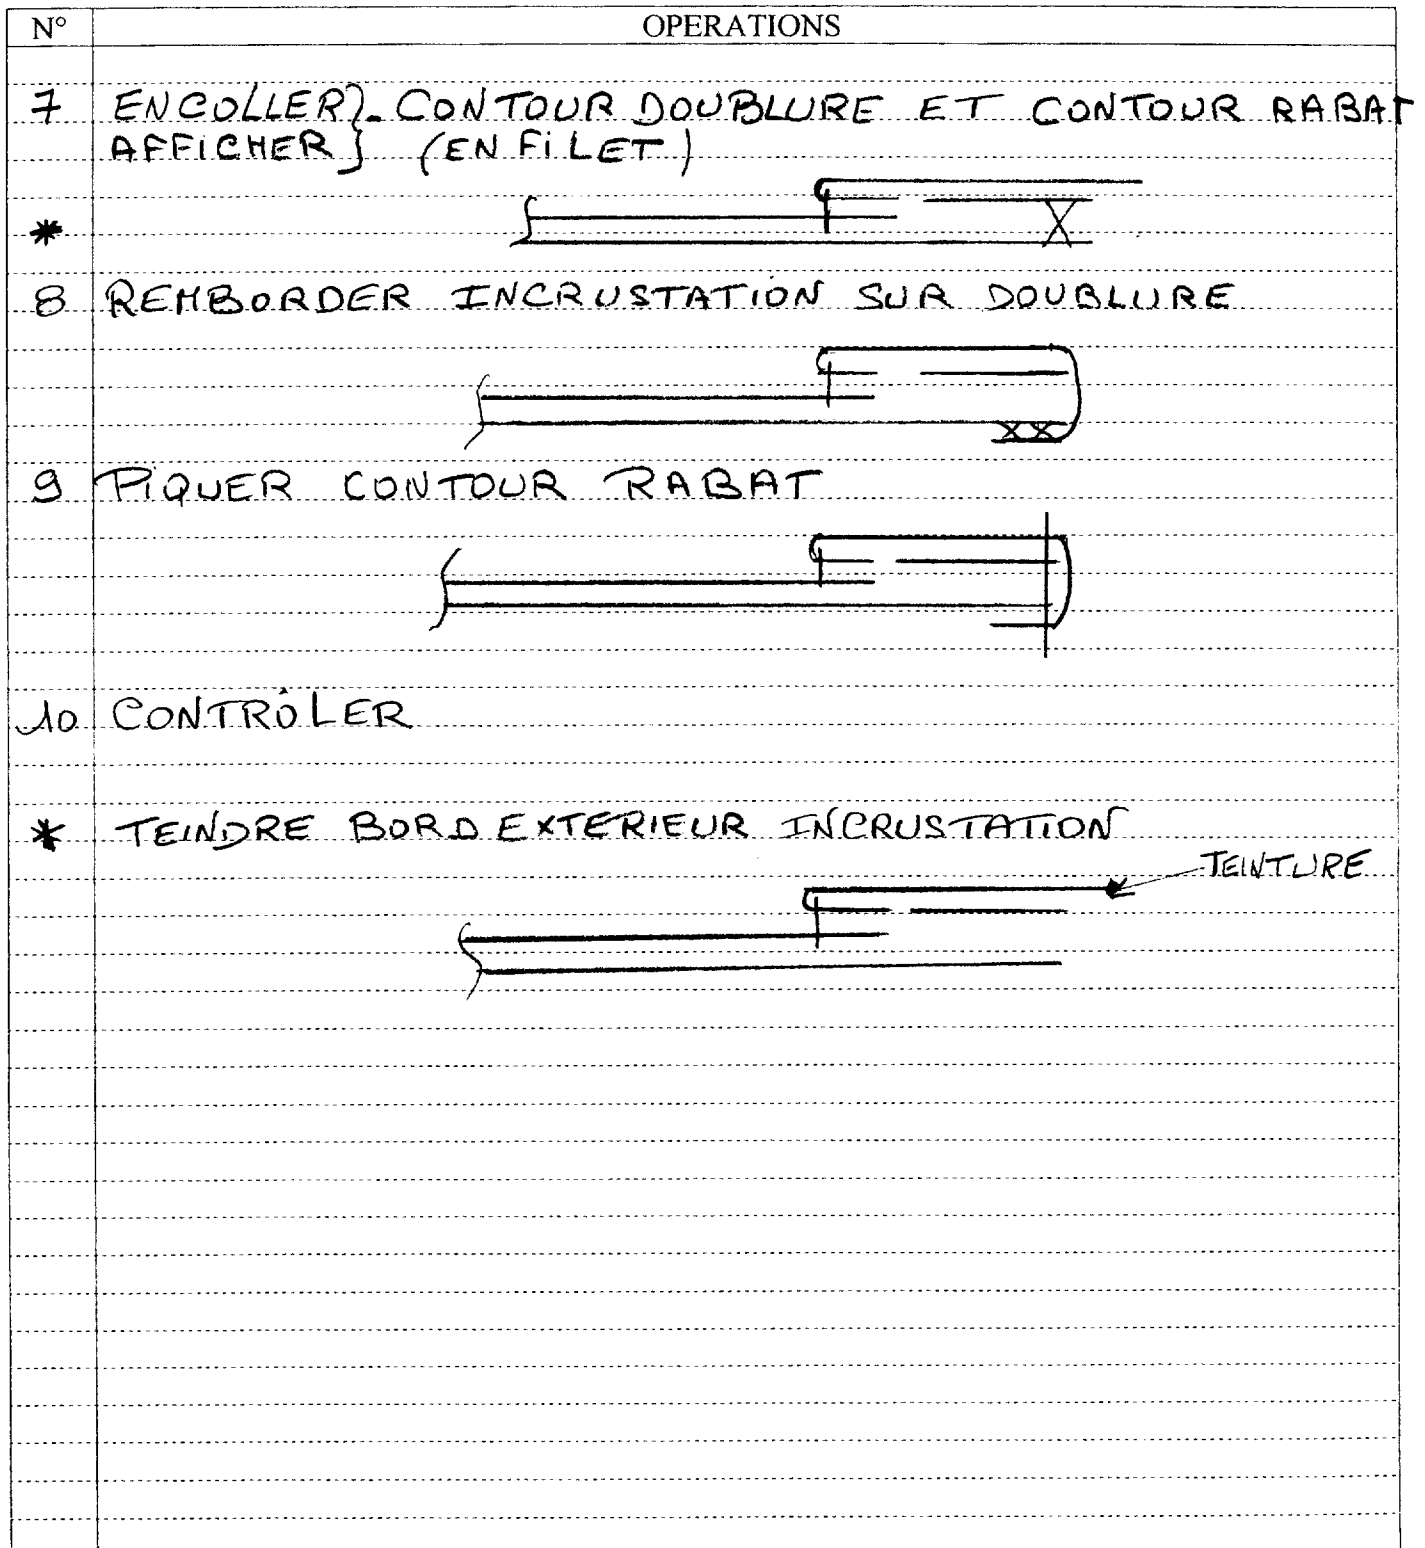 N° OPERATIONS
7 ENCOLLER}- CONTOUR DOUBLURE ET CONTOUR RABAT
AFFICHER} (EN FILET)
*
8 REMBORDER INCRUSTATION SUR DOUBLURE
9 PIQUER CONTOUR RABAT
10 CONTRÔLER
* TEINDRE BORD EXTERIEUR INCRUSTATION
TEINTURE